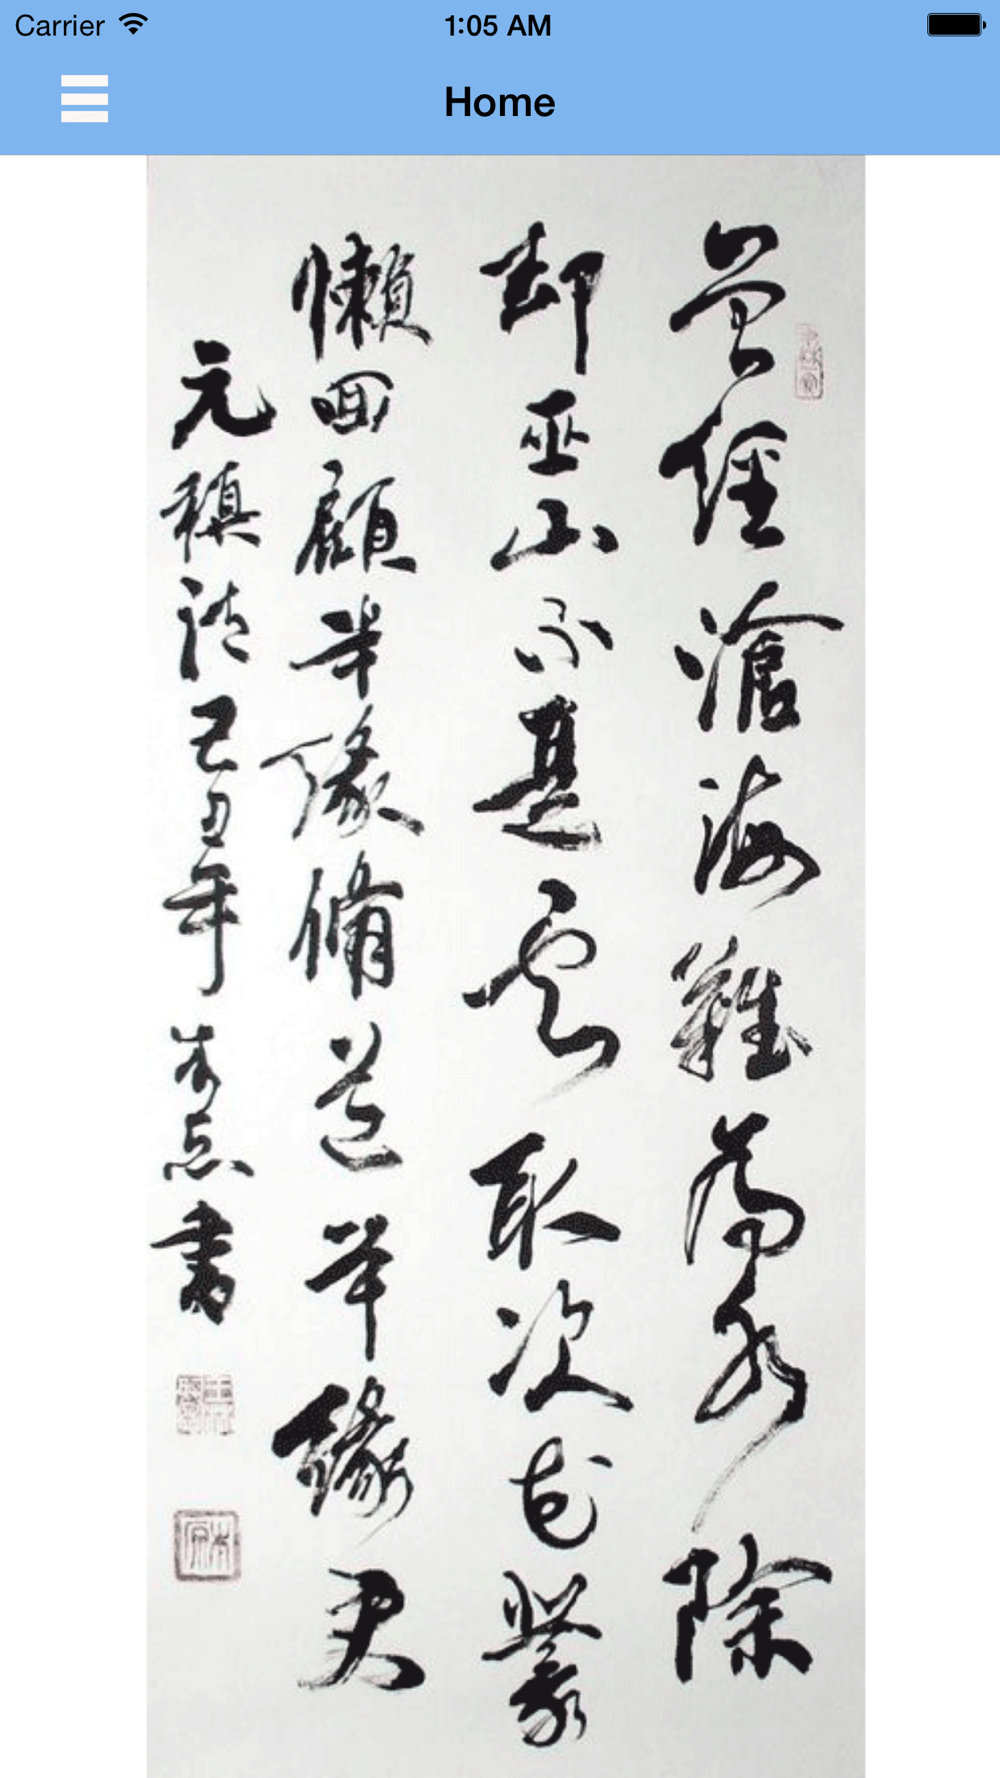 Carrier 1:05 AM
Home
曾經滄海難為水除
却巫山不是雲取次花叢
懶回顧半緣修道半緣君
元稹詩己丑年書